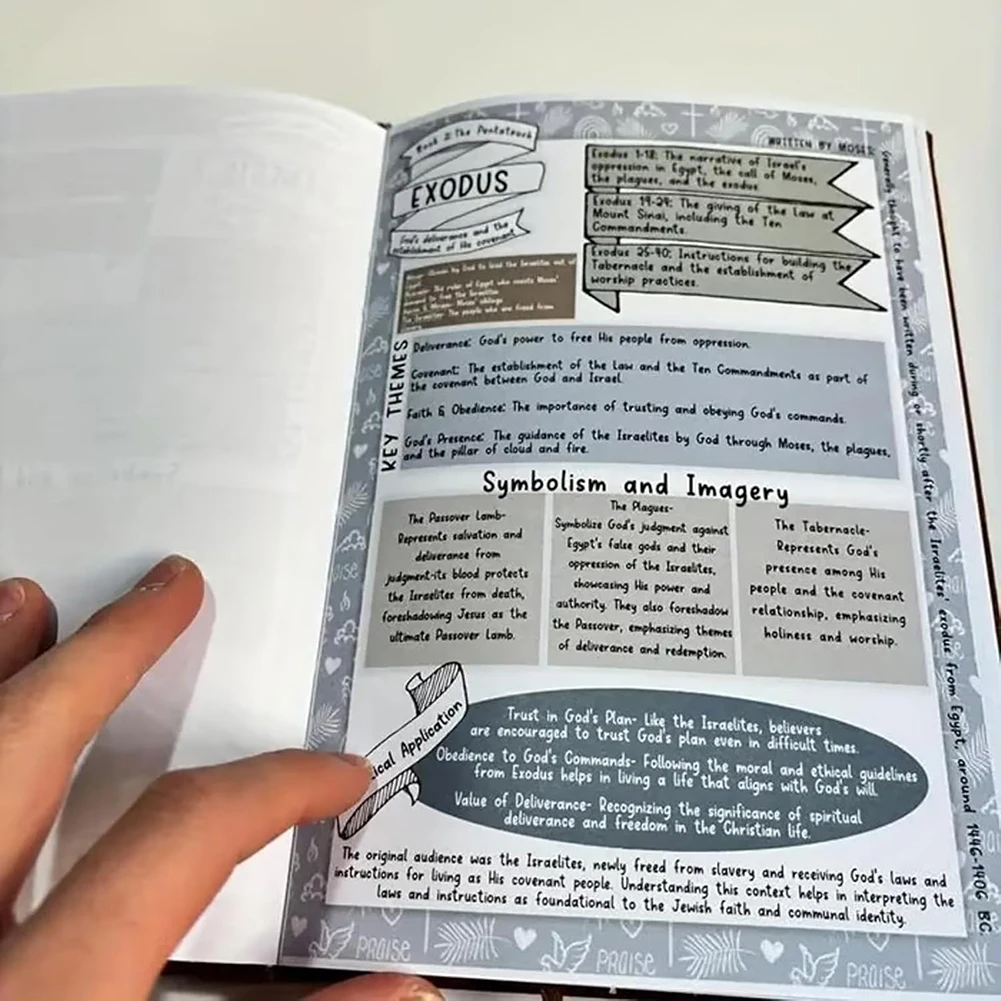 Book 2: The Pentateuch
EXODUS
God's deliverance and the
establishment of His covenant
WRITTEN BY MOSES:
Generally thought to have been written during or shortly after the Israelites' exodus from Egypt, around 1446-1406 BC
Exodus 1-18: The narrative of Israel's
oppression in Egypt, the call of Moses,
the plagues, and the exodus
Exodus 19-24: The giving of the Law at
Mount Sinai, including the Ten
Commandments.
Exodus 25-40: Instructions for building the
Tabernacle and the establishment of
worship practices.
by God to lead the Israelites out of
The ruler of Egypt who resists Moses'
demand to free the Israelites
Miriam- Moses' siblings
The Israelites- The people who are freed from
KEY THEMES
Deliverance: God's power to free His people from oppression.
Covenant: The establishment of the Law and the Ten Commandments as part of
the covenant between God and Israel.
Faith & Obedience: The importance of trusting and obeying God's commands.
God's Presence: The guidance of the Israelites by God through Moses, the plagues,
and the pillar of cloud and fire.
Symbolism and Imagery
The Passover Lamb-
Represents salvation and
deliverance from
judgment-its blood protects
the Israelites from death,
foreshadowing Jesus as the
ultimate Passover Lamb.
The Plagues-
Symbolize God's judgment against
Egypt's false gods and their
oppression of the Israelites,
showcasing His power and
authority. They also foreshadow
the Passover, emphasizing themes
of deliverance and redemption.
The Tabernacle-
Represents God's
presence among His
people and the covenant
relationship, emphasizing
holiness and worship.
ical Application
Trust in God's Plan- Like the Israelites, believers
are encouraged to trust God's plan even in difficult times.
Obedience to God's Commands- Following the moral and ethical guidelines
from Exodus helps in living a life that aligns with God's will.
Value of Deliverance- Recognizing the significance of spiritual
deliverance and freedom in the Christian life.
The original audience was the Israelites, newly freed from slavery and receiving God's laws and
instructions for living as His covenant people. Understanding this context helps in interpreting the
laws and instructions as foundational to the Jewish faith and communal identity.
PRAISE
PRAISE
PRAISE